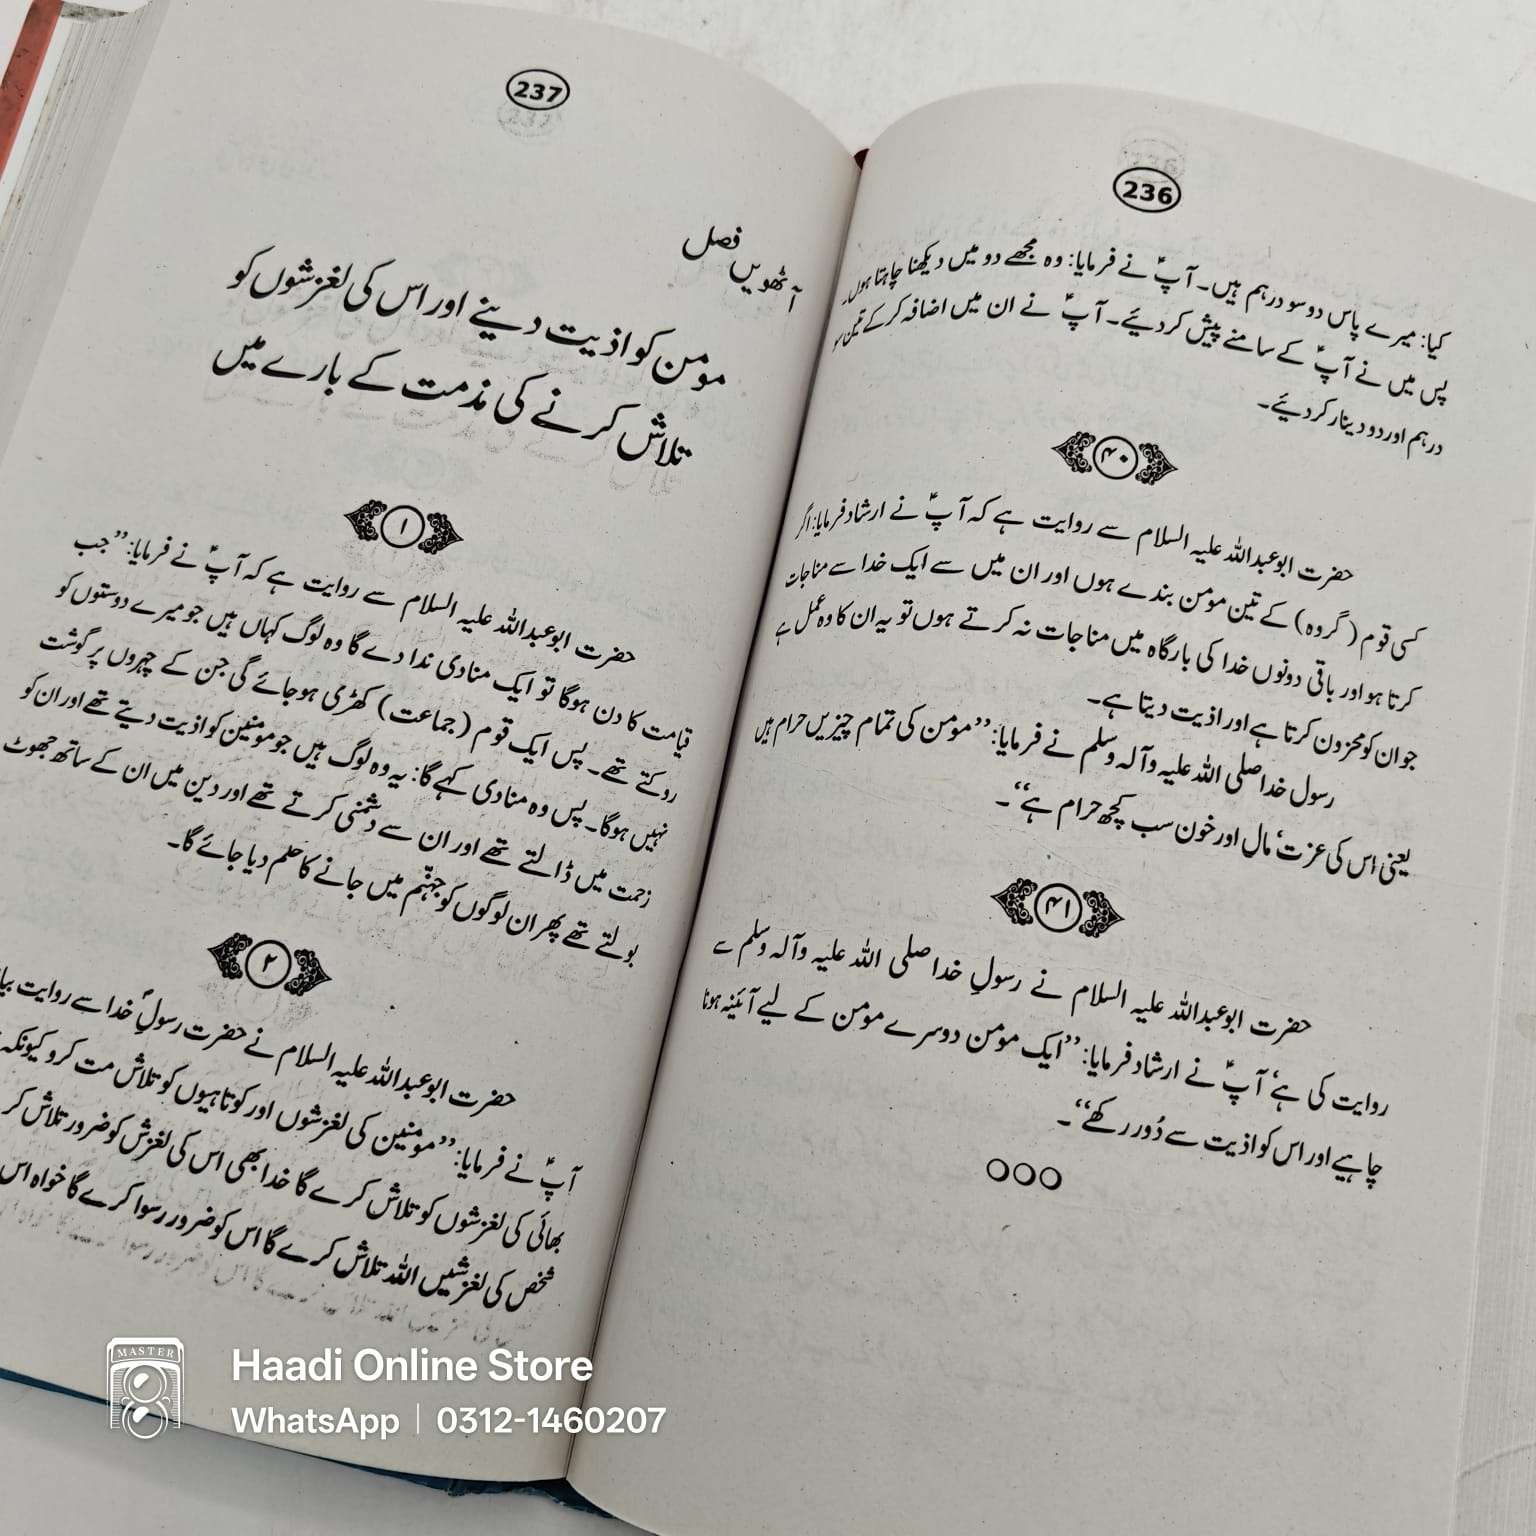 236
کیا: میرے پاس دو سو درہم ہیں۔ آپؐ نے فرمایا: وہ مجھے دو میں دیکھنا چاہتا ہوں۔
پس میں نے آپؐ کے سامنے پیش کر دیئے۔ آپؐ نے ان میں اضافہ کر کے تین سو
درہم اور دو دینار کر دیئے۔
۴۰
حضرت ابوعبداللہ علیہ السلام سے روایت ہے کہ آپؑ نے ارشاد فرمایا: اگر
کسی قوم (گروہ) کے تین مومن بندے ہوں اور ان میں سے ایک خدا سے مناجات
کرتا ہو اور باقی دونوں خدا کی بارگاہ میں مناجات نہ کرتے ہوں تو یہ ان کا وہ عمل ہے
جو ان کو محزون کرتا ہے اور اذیت دیتا ہے۔
رسول خدا صلی اللہ علیہ وآلہ وسلم نے فرمایا: ”مومن کی تمام چیزیں حرام ہیں
یعنی اس کی عزت، مال اور خون سب کچھ حرام ہے“۔
۴۱
حضرت ابوعبداللہ علیہ السلام نے رسولِ خدا صلی اللہ علیہ وآلہ وسلم سے
روایت کی ہے، آپؐ نے ارشاد فرمایا: ”ایک مومن دوسرے مومن کے لیے آئینہ ہونا
چاہیے اور اس کو اذیت سے دُور رکھے“۔
○○○
237
آٹھویں فصل
مومن کو اذیت دینے اور اس کی لغزشوں کو
تلاش کرنے کی مذمت کے بارے میں
۱
حضرت ابوعبداللہ علیہ السلام سے روایت ہے کہ آپؑ نے فرمایا: ”جب
قیامت کا دن ہوگا تو ایک منادی ندا دے گا وہ لوگ کہاں ہیں جو میرے دوستوں کو
روکتے تھے۔ پس ایک قوم (جماعت) کھڑی ہو جائے گی جن کے چہروں پر گوشت
نہیں ہوگا۔ پس وہ منادی کہے گا: یہ وہ لوگ ہیں جو مومنین کو اذیت دیتے تھے اور ان کو
زحمت میں ڈالتے تھے اور ان سے دشمنی کرتے تھے اور دین میں ان کے ساتھ جھوٹ
بولتے تھے پھر ان لوگوں کو جہنّم میں جانے کا حلم دیا جائے گا۔
۲
حضرت ابوعبداللہ علیہ السلام نے حضرت رسولِؐ خدا سے روایت
آپؐ نے فرمایا: ”مومنین کی لغزشوں اور کوتاہیوں کو تلاش مت کرو کیونکہ
بھائی کی لغزشوں کو تلاش کرے گا خدا بھی اس کی لغزش کو ضرور تلاش کر
شخص کی لغزشیں اللہ تلاش کرے گا اس کو ضرور رسوا کرے گا خواہ اس
MASTER
Haadi Online Store
WhatsApp | 0312-1460207